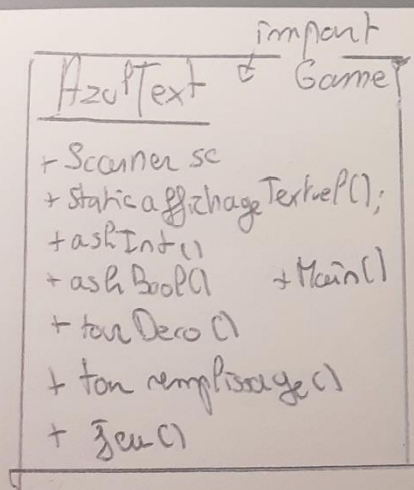 import
AzulText Game
+ Scanner sc
+ Static affichageTextuel();
+ askInt()
+ askBool() + Main()
+ tourDeco()
+ tour remplissage()
+ Jeu()